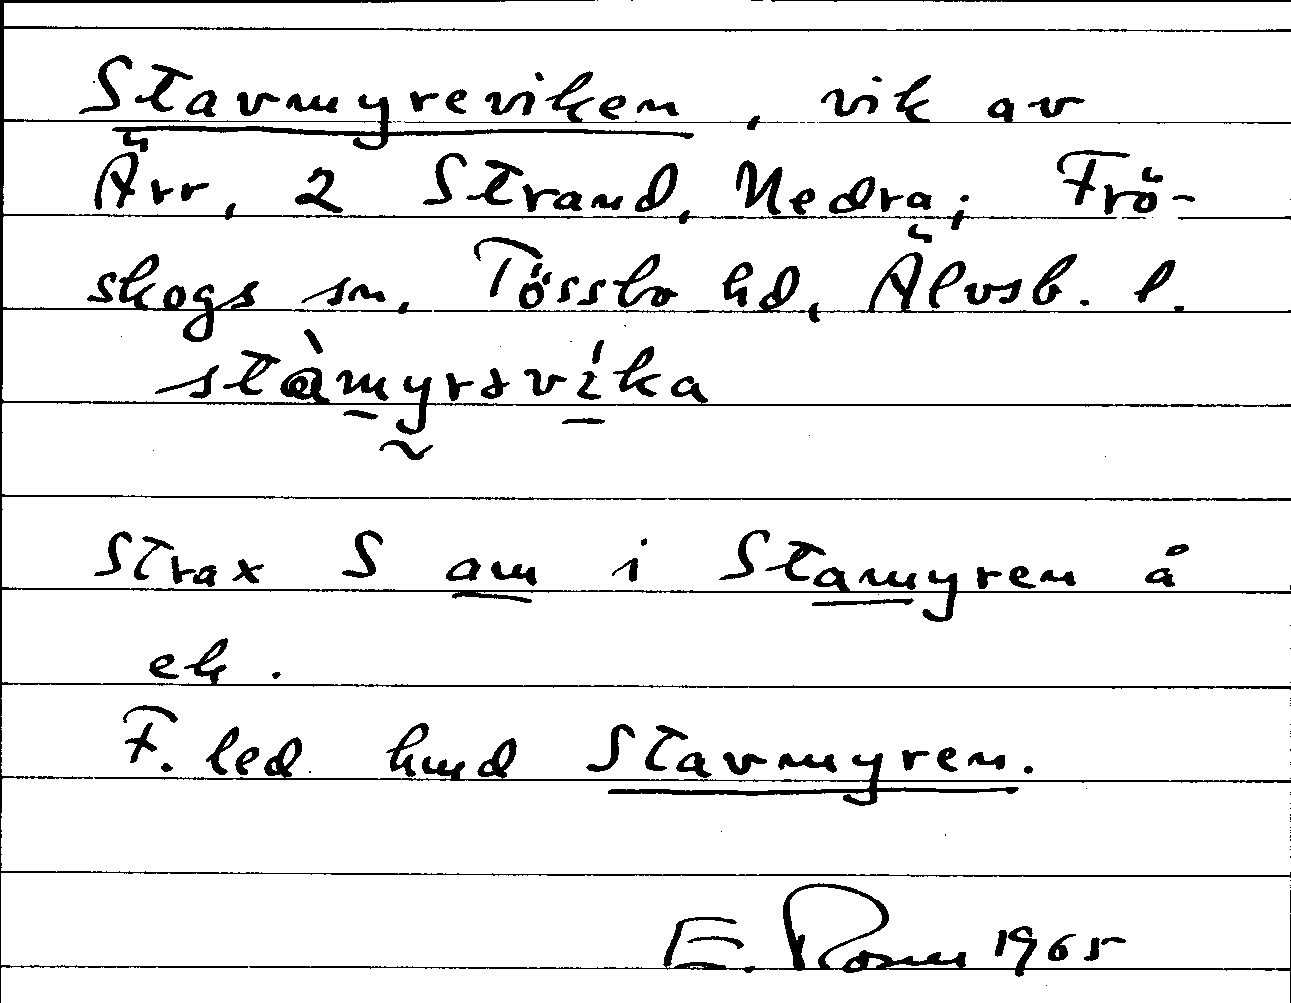 Stavmyreviken, vik av
Ärr, 2 Strand, Nedra; Frö-
skogs sn, Tössbo hd, Älvsb. l.
stàmyrsvíka
Strax S am i Stamyren å
ek.
F. led hmd Stavmyren.
E. Rosell 1965